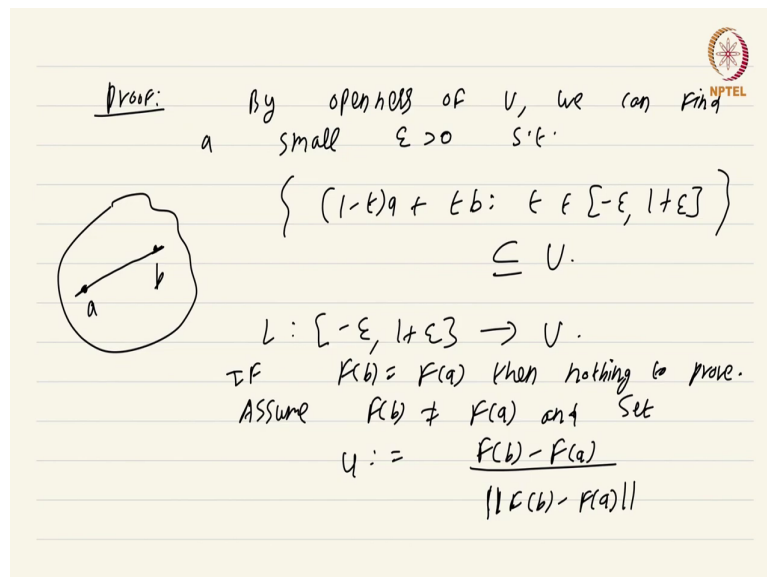 NPTEL
Proof: By openness of U, we can find
a small ε > 0 s.t.
{ (1-t)a + tb : t ∈ [-ε, 1+ε] }
⊆ U.
a b
L : [-ε, 1+ε] → U.
If F(b) = F(a) then nothing to prove.
Assume F(b) ≠ F(a) and set
u := F(b) - F(a)
||F(b) - F(a)||